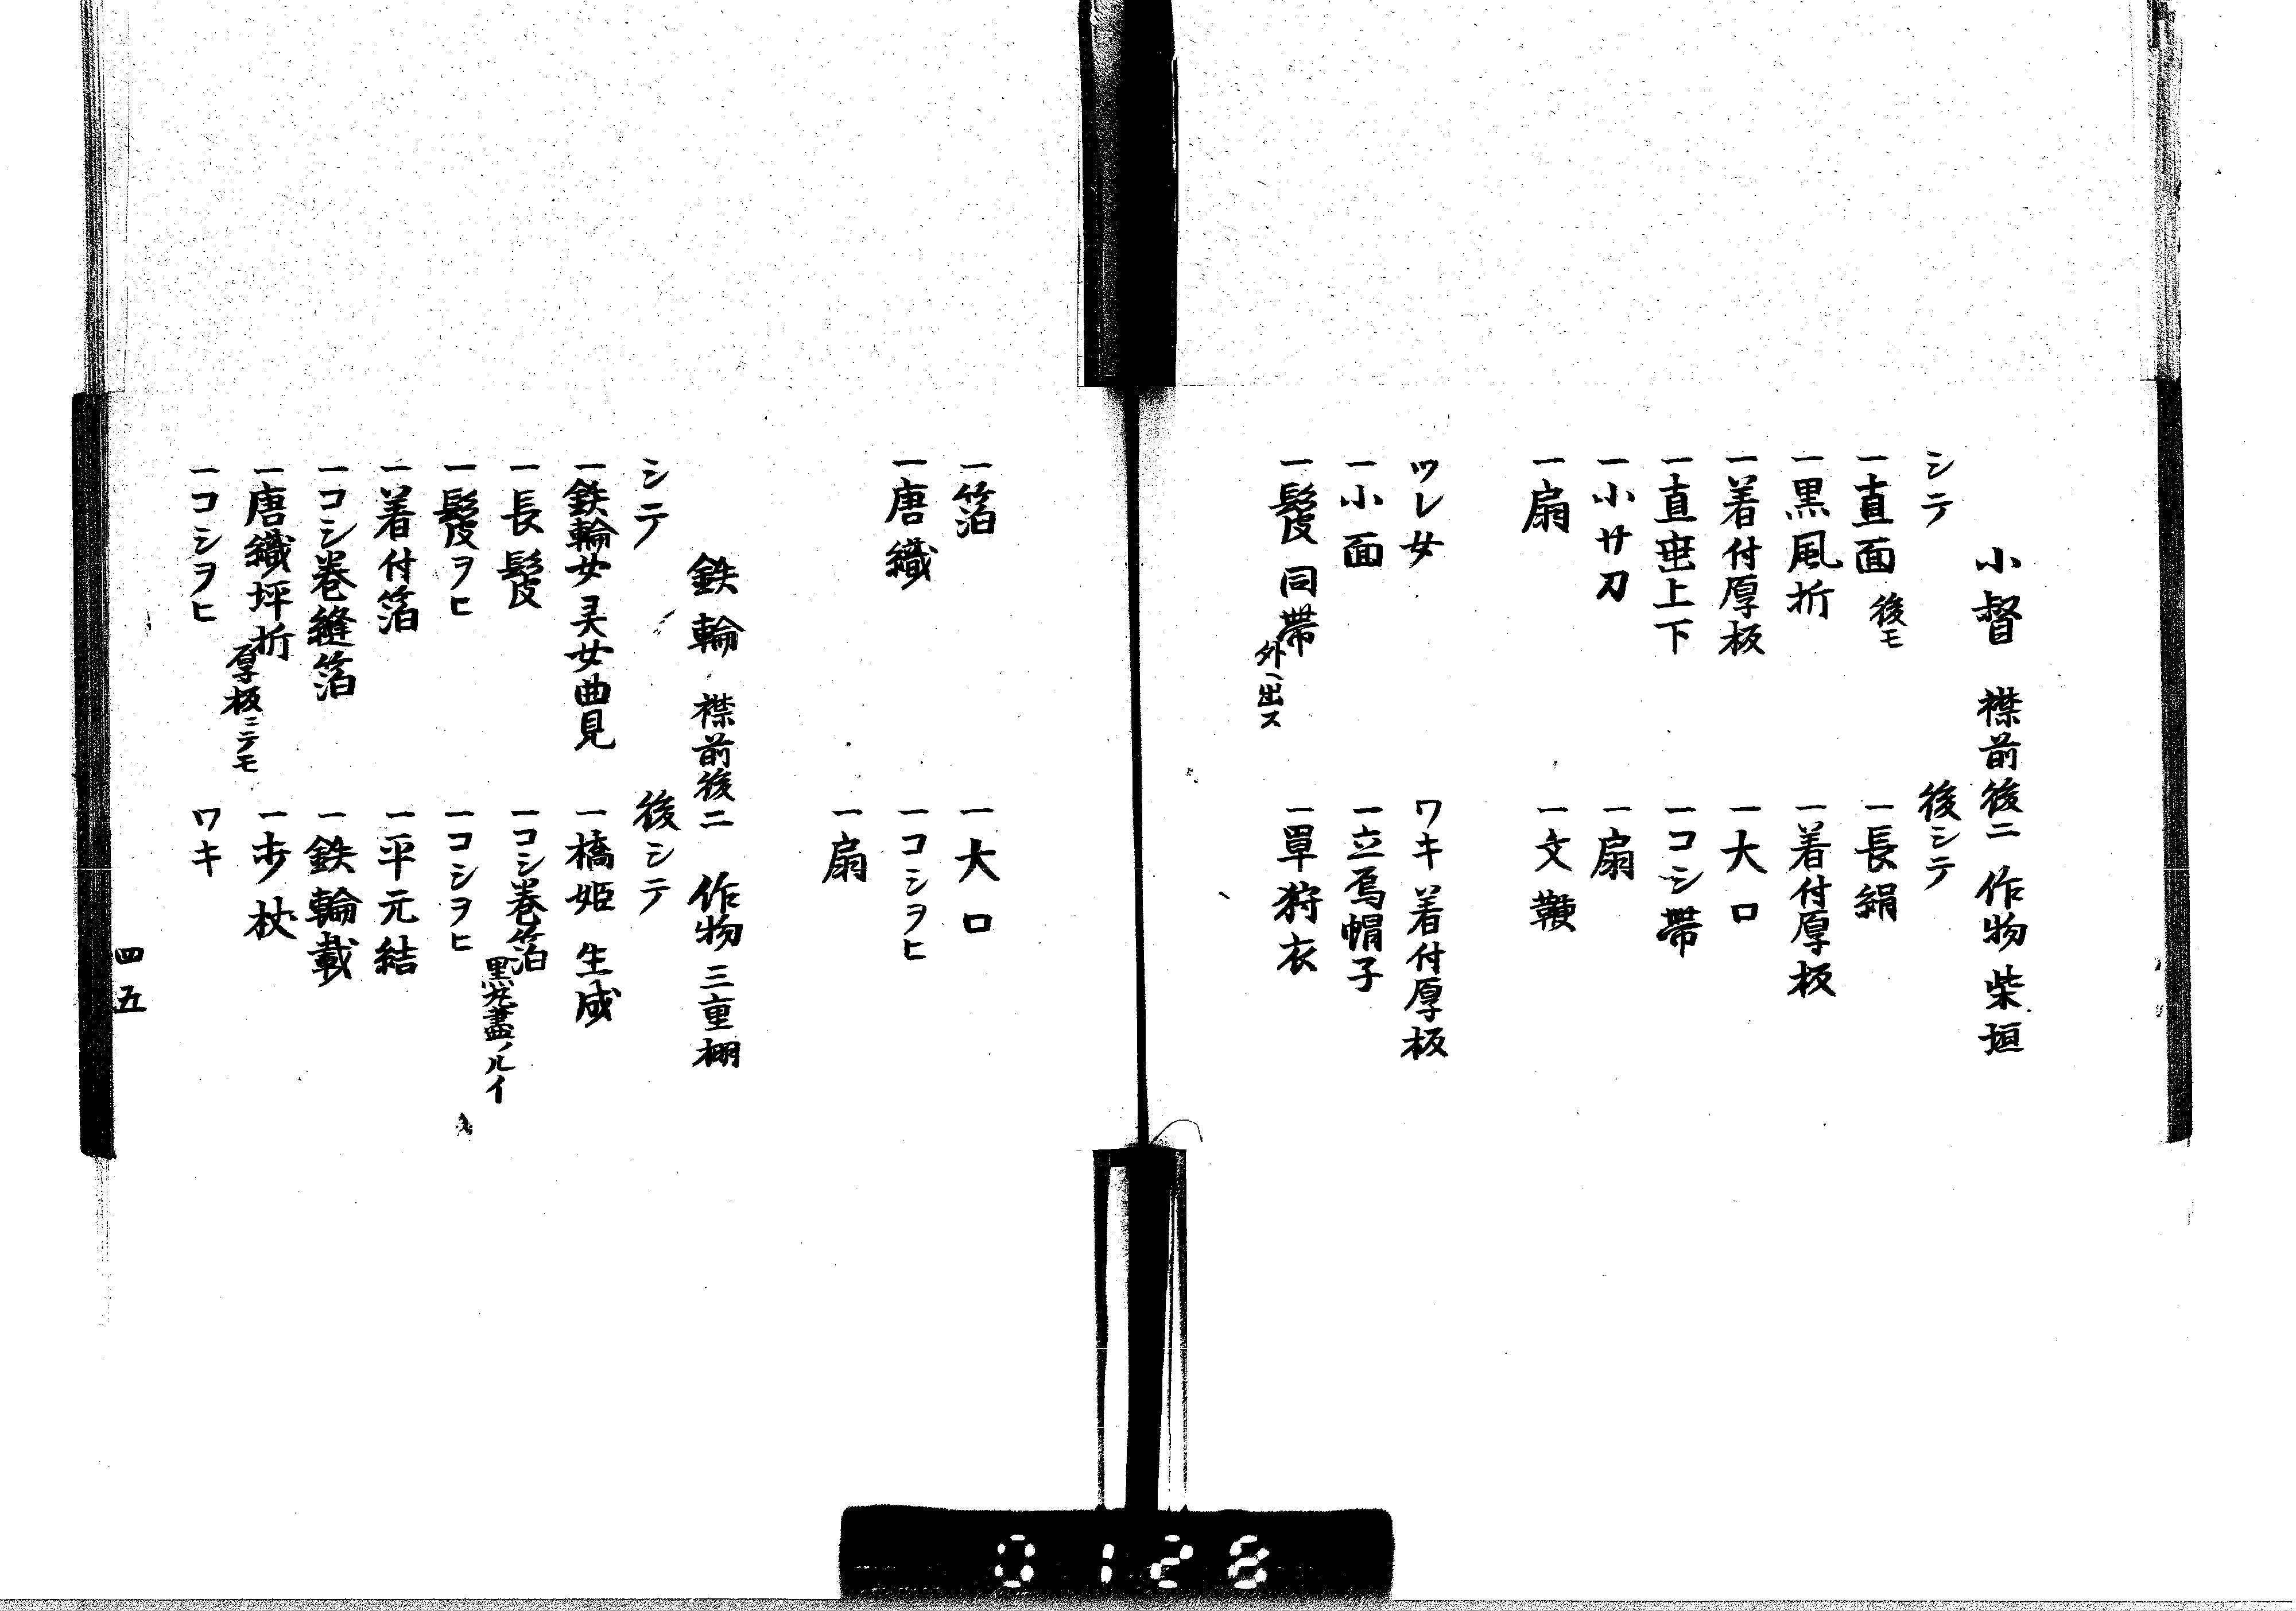 小督 襟前後二 作物 柴垣
シテ 後シテ
一直面 後モ 一長絹
一黒風折 一着付厚板
一着付厚板 一大口
一直垂上下 一コシ帯
一小サ刀 一扇
一扇 一文
ツレ女 ワキ 着付厚板
一小面 一立烏帽子
一鬘 同帯 外ヘ出ス 一単狩衣
一箔 一大口
一唐織 一コシヲヒ
一扇
鉄輪 襟前後二 作物 三重棚
シテ 後シテ
一鉄輪女 灵女 曲見 一橋姫 生成
一長鬘 一コシ巻箔 黒ノルイ
一鬘ヲヒ 一コシヲヒ
一着付箔 一平元結
一コシ巻縫箔 一鉄輪載
一唐織坪折 厚板ニテモ 一歩杖
一コシヲヒ ワキ
四五
0128